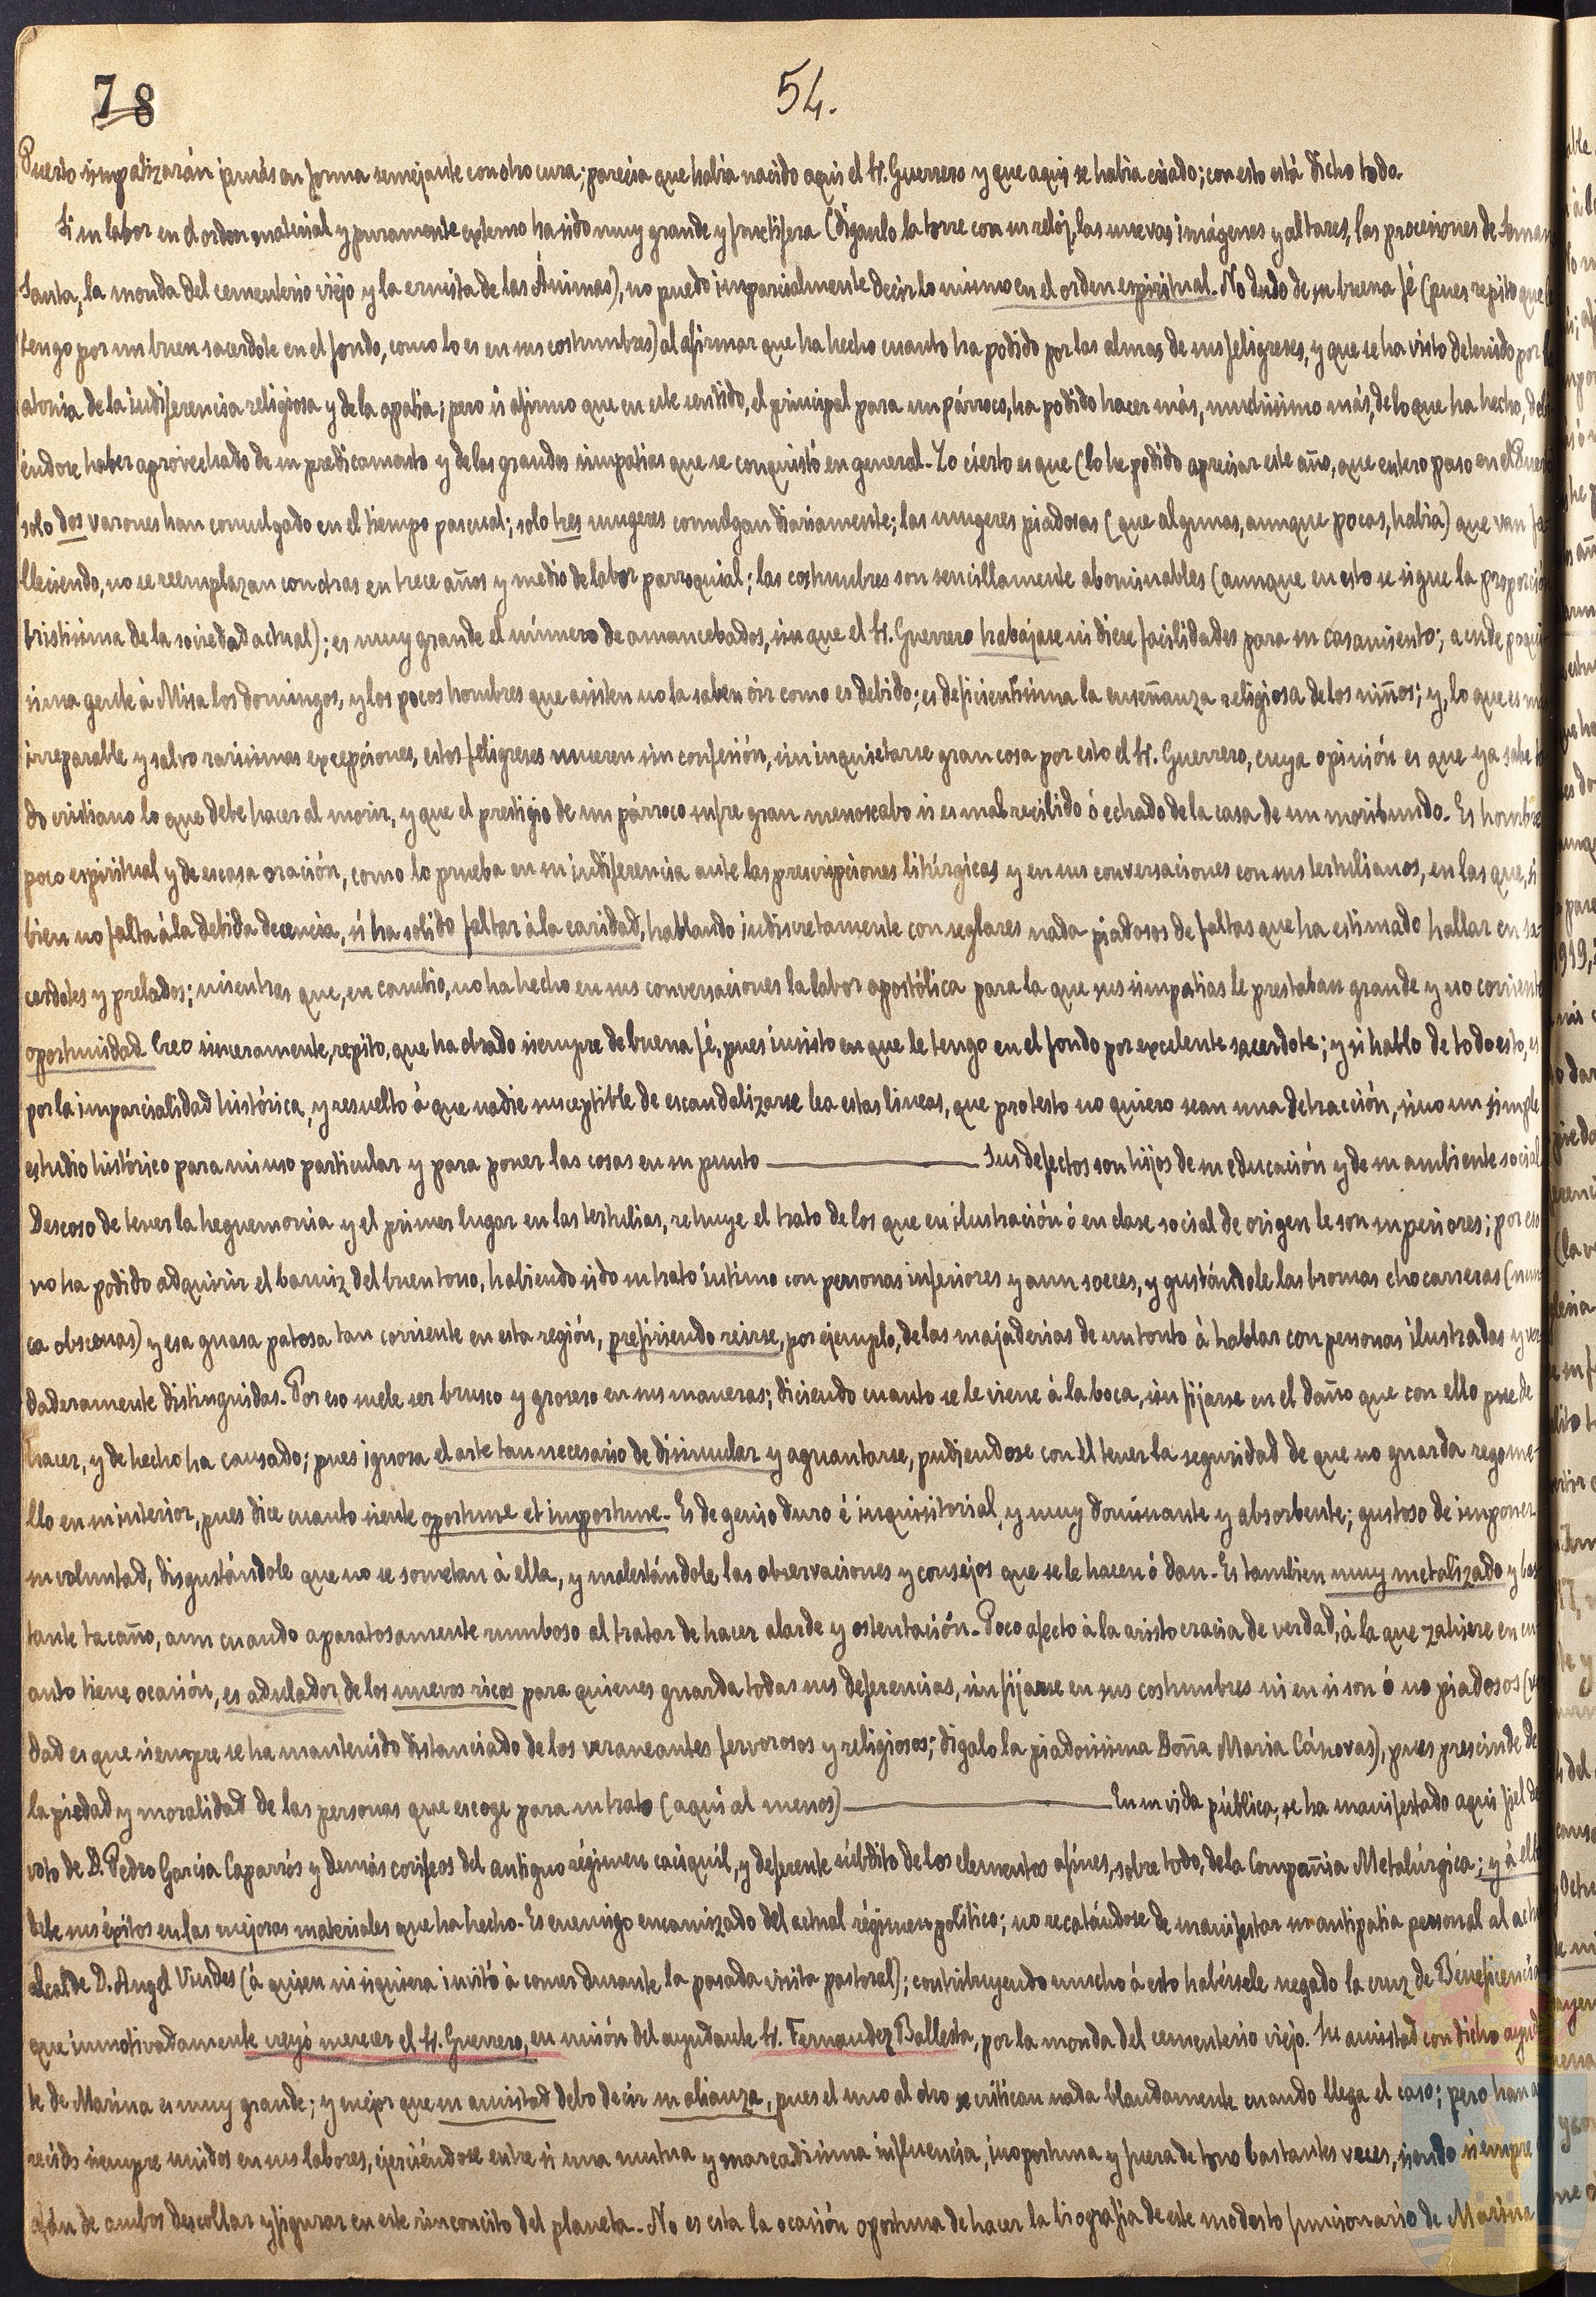 78
54.
Puerto simpatizarán jamás en forma semejante con otro cura; parecía que había nacido aquí el Sr. Guerrero y que aquí se había criado; con esto está dicho todo.
Si su labor en el orden material y puramente externo ha sido muy grande y fructífera (díganlo la torre con su reloj, las nuevas imágenes y altares, las procesiones de Semana
Santa, la monda del cementerio viejo y la ermita de las Ánimas), no puedo imparcialmente decir lo mismo en el orden espiritual. No dudo de su buena fé (pues repito que
tengo por un buen sacerdote en el fondo, como lo es en sus costumbres) al afirmar que ha hecho cuanto ha podido por las almas de sus feligreses, y que se ha visto detenido por
atonia de la indiferencia religiosa y de la apatia; pero si afirmo que en este sentido, el principal para un párroco, ha podido hacer más, muchísimo más, de lo que ha hecho,
éndose haber aprovechado de su predicamento y de las grandes simpatias que se conquistó en general. Lo cierto es que (lo he podido apreciar este año, que entero paso en el Puerto
solo dos varones han comulgado en el tiempo pascual; solo tres mugeres comulgan diariamente; las mugeres piadosas (que algunas, aunque pocas, habia) que van fa-
lleciendo, no se reemplazan con otras en trece años y medio de labor parroquial; las costumbres son sencillamente abominables (aunque en esto se sigue la proporción
tristísima de la sociedad actual); es muy grande el número de amancebados, sin que el Sr. Guerrero trabajase ni diese facilidades para su casamiento; acude poquí-
sima gente á Misa los domingos, y los pocos hombres que asisten no la saben oir como es debido; es deficientísima la enseñanza religiosa de los niños; y, lo que es más
irreparable y salvo rarísimas excepciones, estos feligreses mueren sin confesión, sin inquietarse gran cosa por esto el Sr. Guerrero, cuya opinión es que ya sabe to
do cristiano lo que debe hacer al morir, y que el prestigio de un párroco sufre gran menoscabo si es mal recibido ó echado de la casa de un moribundo. Es hombre
poco espiritual y de escasa oración, como lo prueba en su indiferencia ante las prescripciones litúrgicas y en sus conversaciones con sus tertulianos, en las que, si
bien no falta á la debida decencia, si ha solido faltar á la caridad, hablando indiscretamente con seglares nada piadosos de faltas que ha estimado hallar en sa-
cerdotes y prelados; mientras que, en cambio, no ha hecho en sus conversaciones la labor apostólica para la que sus simpatias le prestaban grande y no corriente
oportunidad. Creo sinceramente, repito, que ha obrado siempre de buena fé, pues insisto en que le tengo en el fondo por excelente sacerdote; y si hablo de todo esto, es
por la imparcialidad histórica, y resuelto á que nadie susceptible de escandalizarse lea estas lineas, que protesto no quiero sean una detracción, sino un simple
estudio histórico para mi uso particular y para poner las cosas en su punto ——— Sus defectos son hijos de su educación y de su ambiente social
Deseoso de tener la heguemonia y el primer lugar en las tertulias, rehuye el trato de los que en ilustración ó en clase social de origen le son superiores; por eso
no ha podido adquirir el barniz del buen tono, habiendo sido su trato íntimo con personas inferiores y aun soeces, y gustándole las bromas chocarreras (nun
ca obscenas) y esa guasa patosa tan corriente en esta región, prefiriendo reirse, por ejemplo, de las majaderias de un tonto á hablar con personas ilustradas y ver
daderamente distinguidas. Por eso suele ser brusco y grosero en sus maneras; diciendo cuanto se le viene á la boca, sin fijarse en el daño que con ello puede
hacer, y de hecho ha causado; pues ignora el arte tan necesario de disimular y aguantarse, pudiendose con él tener la seguridad de que no guarda regome-
llo en su interior, pues dice cuanto siente oportune et importune. Es de genio duro é inquisitorial, y muy dominante y absorbente; gustoso de imponer
su voluntad, disgustándole que no se sometan á ella, y molestándole las observaciones y consejos que se le hacen ó dan. Es tambien muy metalizado y bas
tante tacaño, aun cuando aparatosamente rumboso al tratar de hacer alarde y ostentación. Poco afecto á la aristocracia de verdad, á la que zahiere en cu
anto tiene ocasión, es adulador de los nuevos ricos para quienes guarda todas sus deferencias, sin fijarse en sus costumbres ni en si son ó no piadosos (ver
dad es que siempre se ha mantenido distanciado de los veraneantes fervorosos y religiosos; dígalo la piadosísima Doña Maria Cánovas), pues prescinde de
la piedad y moralidad de las personas que escoge para su trato (aquí al menos) ——— En su vida pública, se ha manifestado aqui fiel de
voto de D. Pedro Garcia Caparrós y demás corifeos del antiguo régimen caciquil, y deferente súbdito de los elementos afines, sobre todo, de la Compañia Metalúrgica; y á ello
debe sus éxitos en las mejoras materiales que ha hecho. Es enemigo encarnizado del actual régimen político; no recatándose de manifestar su antipatia personal al actu
alcalde D. Angel Viudes (á quien ni siquiera invitó á comer durante la pasada visita pastoral); contribuyendo mucho á esto habérsele negado la cruz de Beneficencia
que inmotivadamente creyó merecer el Sr. Guerrero, en unión del ayudante Sr. Fernandez Ballesta, por la monda del cementerio viejo. Su amistad con dicho ayud
te de Marina es muy grande; y mejor que su amistad debo decir su alianza, pues el uno al otro se critican nada blandamente cuando llega el caso; pero han
recido siempre unidos en sus labores, ejerciéndose entre si una mutua y marcadísima influencia, inoportuna y fuera de tono bastantes veces, siendo siempre
afán de ambos descollar y figurar en este rinconcito del planeta. No es esta la ocasión oportuna de hacer la biografia de este modesto funcionario de Marina